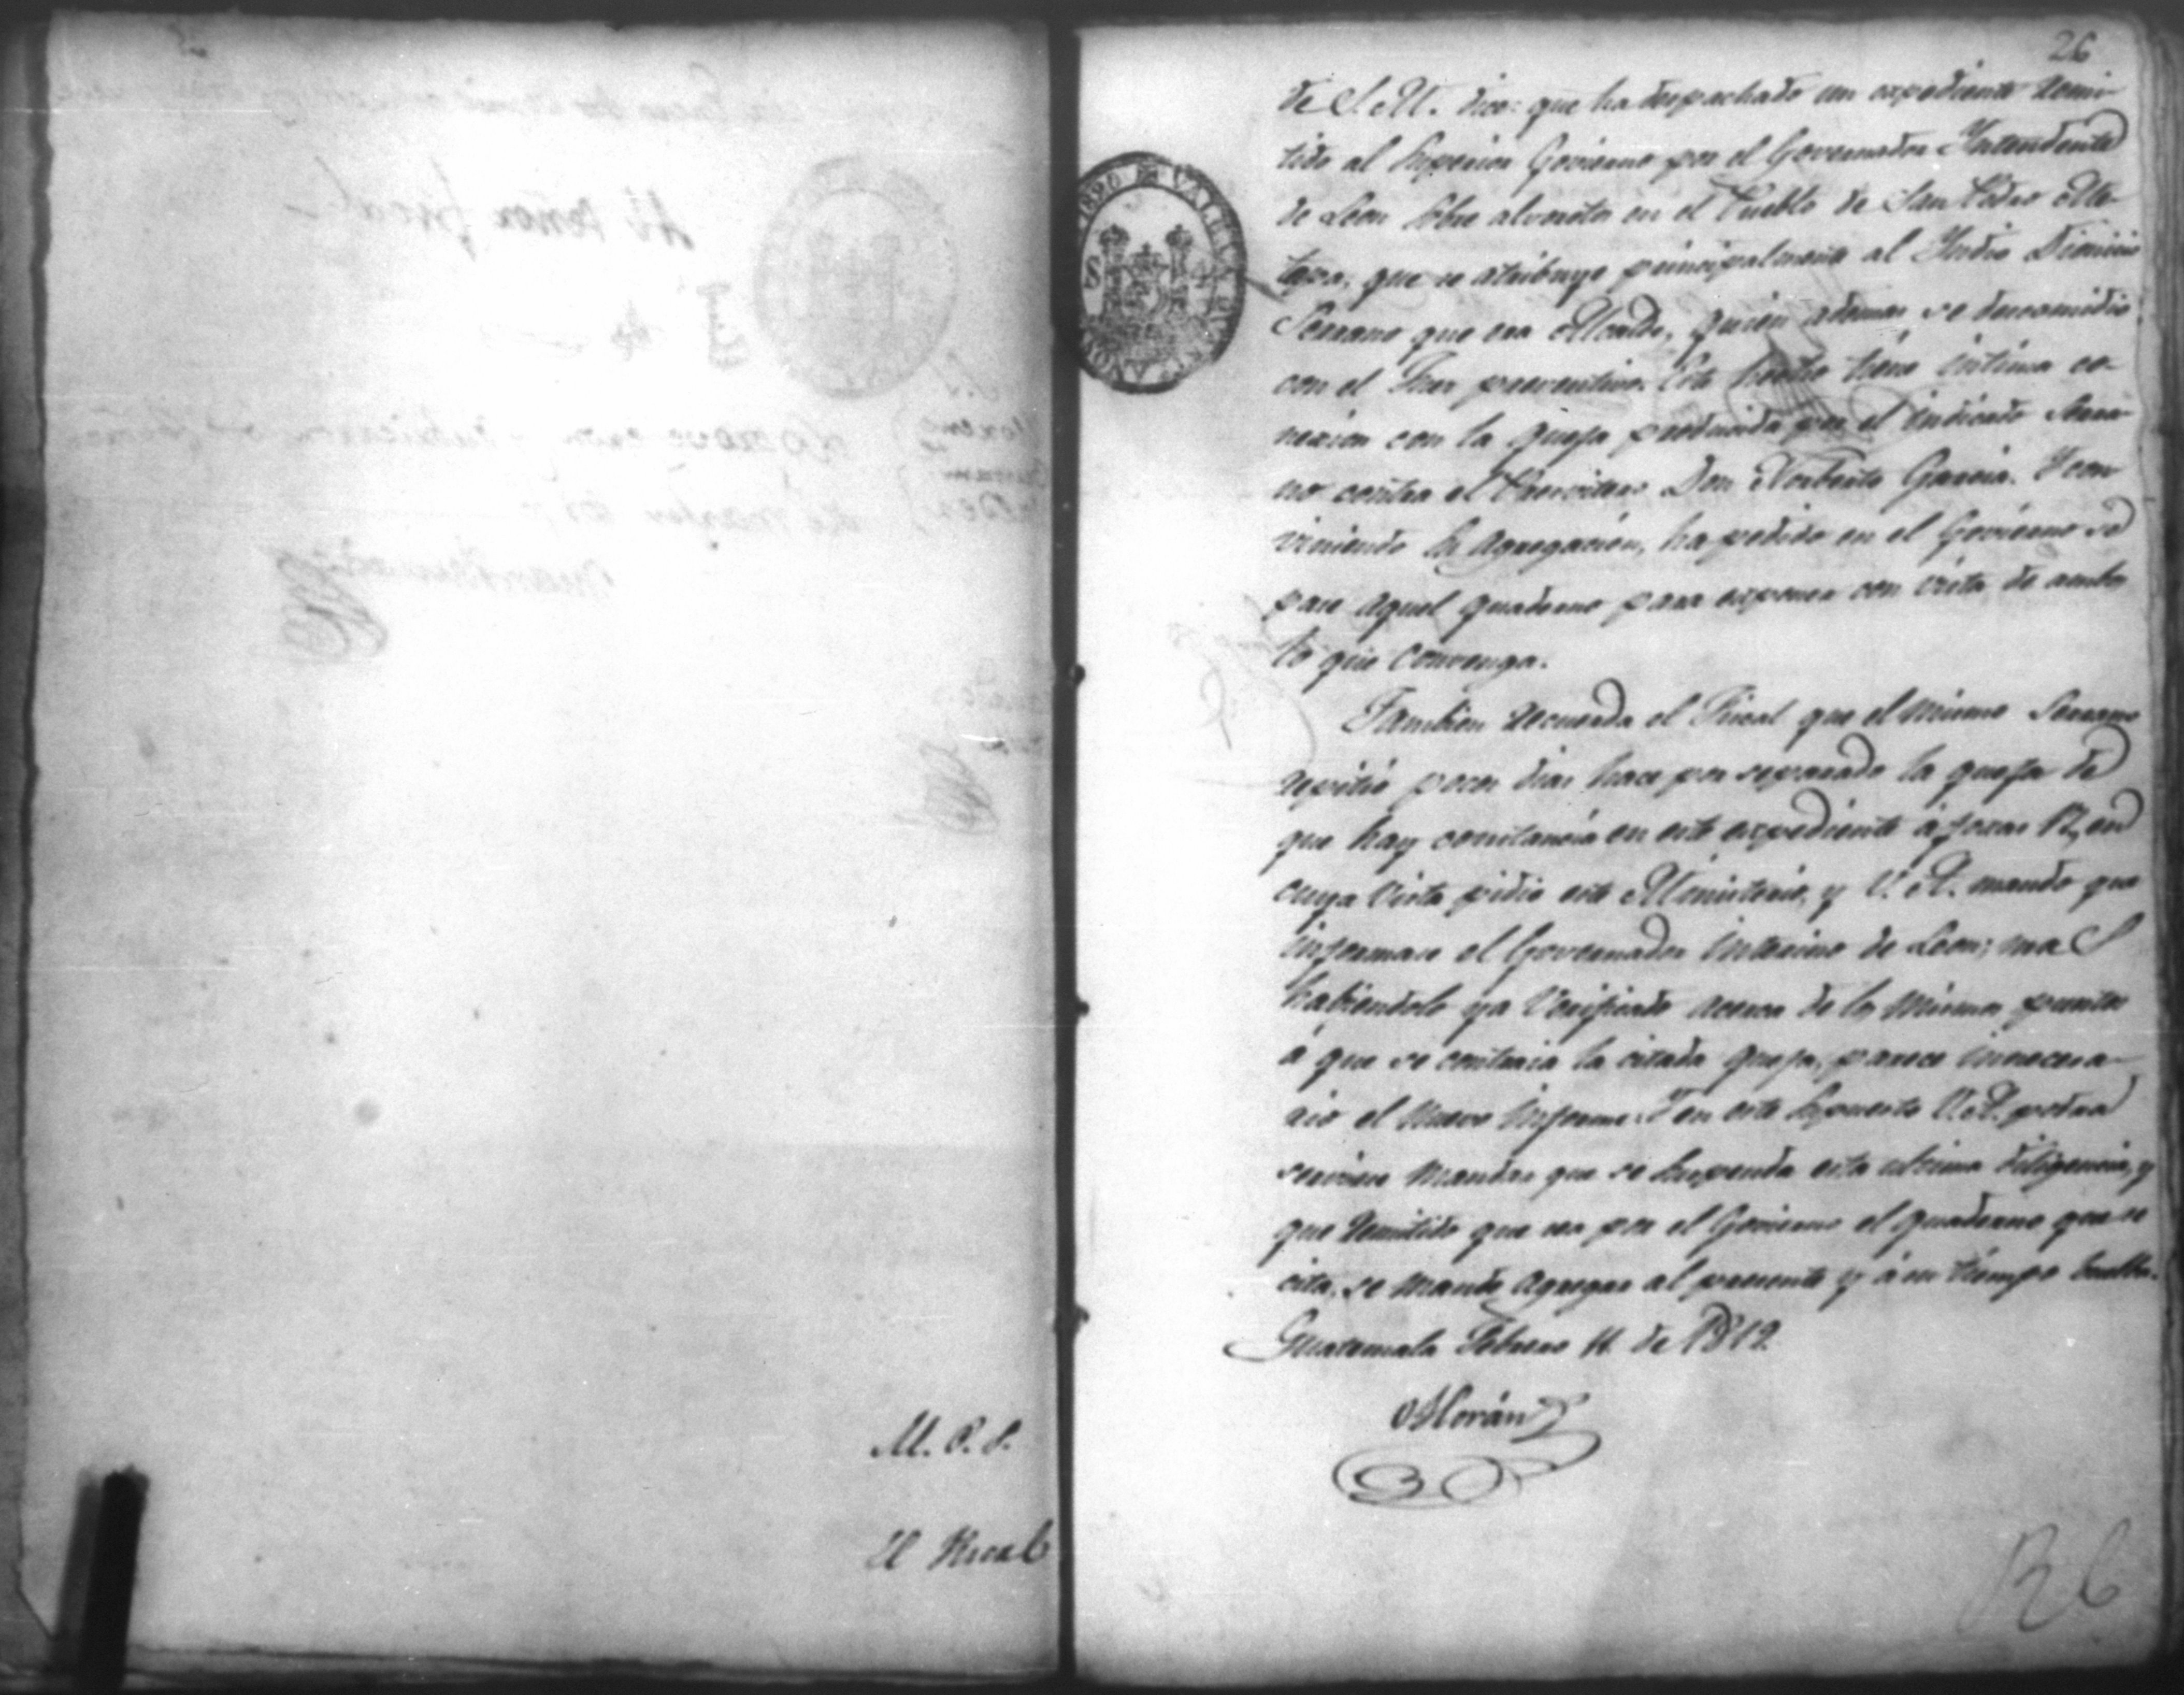 M. P. S.
El Fiscal
26
de S. M. dice: que ha despachado un expediente remi-
tido al Superior Govierno por el Governador Yntendente
de Leon sobre alvoroto en el Pueblo de San Pedro Me-
tapa, que se atribuye principalmente al Yndio Dionicio
Serrano que era Alcalde, quien ademas se descomidió
con el Juez preventivo. Este hecho tiene intima co-
nexion con la queja producida por el indicado Serra-
no contra el Presvitero Don Norberto Garcia. Y con
viniendo su agregacion, ha pedido en el Govierno se
pase aquel quaderno para exponer con vista de ambos
lo que convenga.
Tambien recuerda el Fiscal que el mismo Serrano
repitió pocos dias hace por separado la queja de
que hay constancia en este expediente á foxas 12, en
cuya vista pidió este Ministerio, y V. A. mandó que
informase el Governador interino de Leon; mas
habiendolo ya verificado acerca de los mismos puntos
á que se contraia la citada queja, parece innecesa-
rio el nuevo informe. Y en este supuesto V. A. podrá
servirse mandar que se suspenda esta ultima diligencia, y
que remitido que sea por el Govierno el quaderno que se
cita, se mande agregar al presente y á su tiempo buelba.
Guatemala Febrero 11. de 1819.
Morán